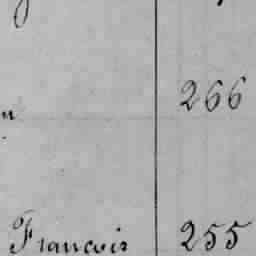 266
Francois 255